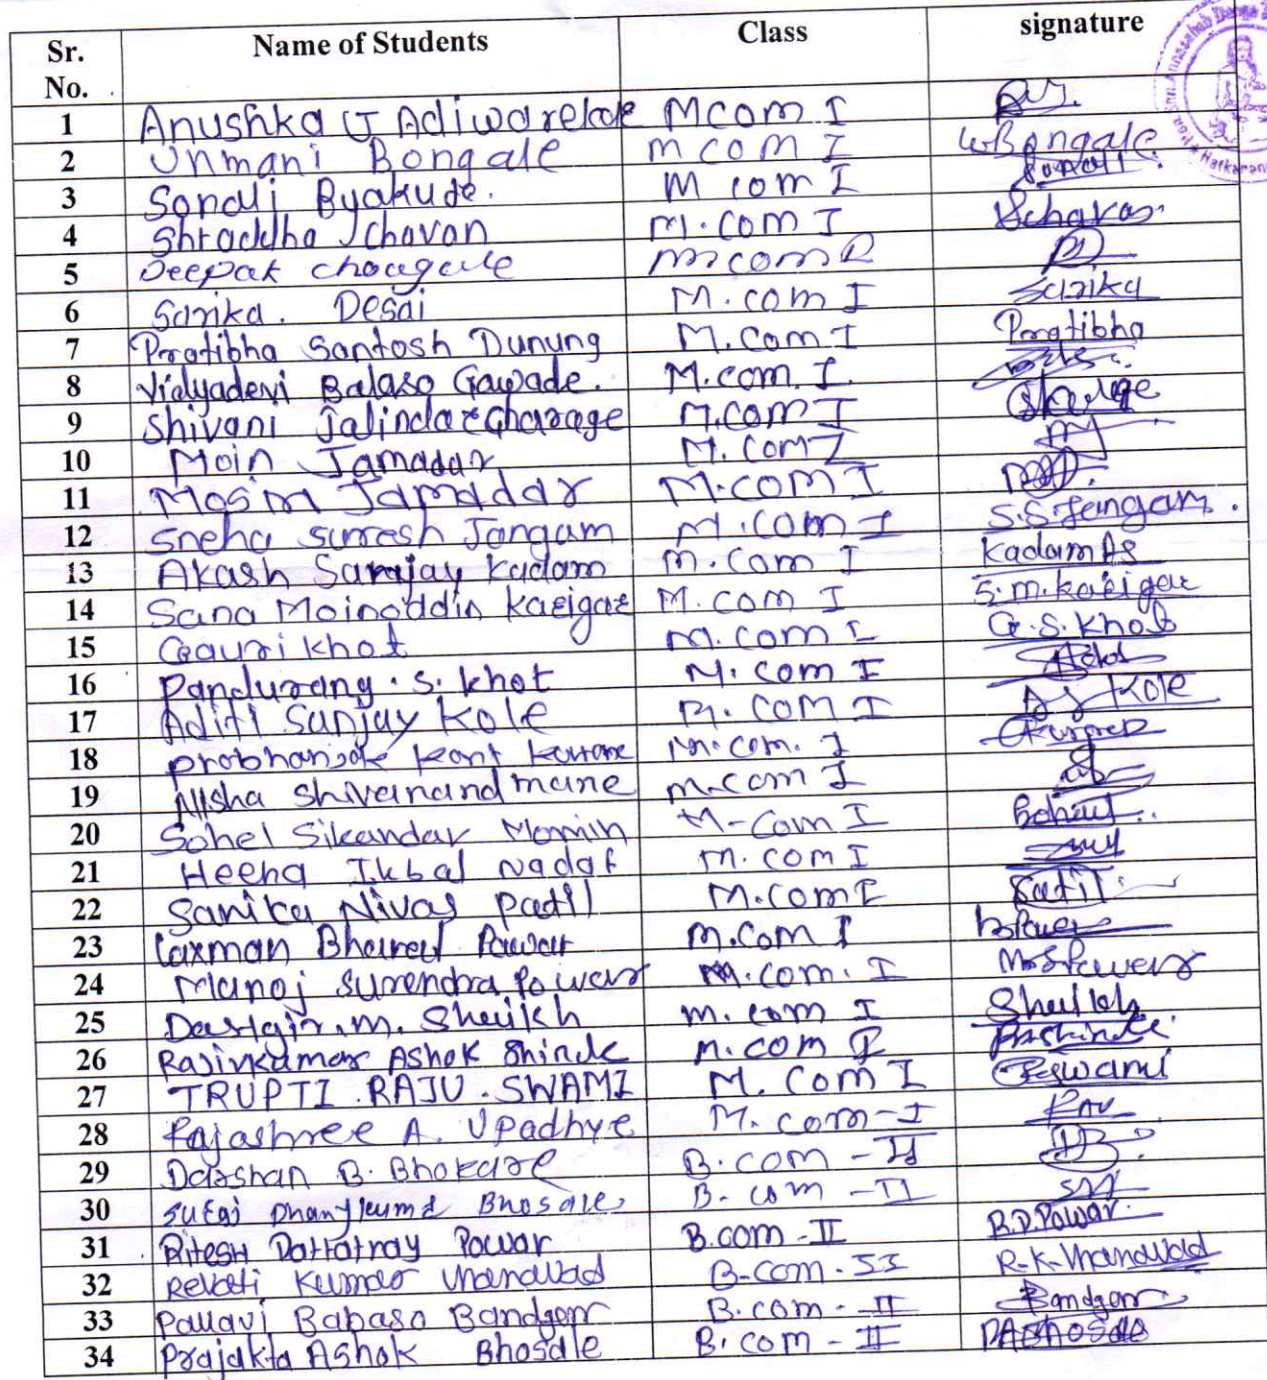 Sr. No. Name of Students Class signature
1 Anushka J Adiwarekar M com I
2 Unmani Bongale M com I Bongale
3 Sonali Byakude. M com I Sonali
4 Shraddha J chavan M.com I Schavan
5 Deepak chougule M.com I
6 Sarika. Desai M.com I Sarika
7 Pratibha Santosh Dunung M.com I Pratibha
8 Vidyadevi Balaso Gawade. M.com. I.
9 Shivani Jalindar Gharage M.com I
10 Moin Jamadar M.com I
11 Mosim Jamadar M.com I
12 Sneha Suresh Jangam M.com I S.S Jangam.
13 Akash Sanjay Kadam M.com I Kadam AS
14 Sana Moinoddin Kaeigar M.com I S.m.kaeigar
15 Gauri khot M.com I G.S.Khot
16 Pandurang.S.khot M.com I
17 Aditi Sanjay Kole M.com I A S Kole
18 kant M.com. I
19 Nisha Shivanand mane M.com I
20 Sohel Sikandar Momin M-Com I
21 Heena Ikbal Nadaf M.com I
22 Sanika Nivas patil M.com I Patil
23 Laxman Bhairu Pawar M.com I
24 Manoj Surendra Powar M.com. I
25 Dastgir.m. Sheikh M.com I Sheikh
26 Rajivkumar Ashok Shinde M.com I
27 TRUPTI.RAJU.SWAMI M.Com I Swami
28 Rajashree A. Upadhye M.com-I RAU
29 Darshan B. Bhokare B.com-II
30 Bhosale B.com-II
31 Ritesh Dattatray Powar B.com-II R.D.Powar.
32 Revati Kumar Vhanavad B-com-II R-K-Vhanavad
33 Pallavi Babaso Bandgar B.com-II Bandgar
34 Prajakta Ashok Bhosale B.com-II PABhosale